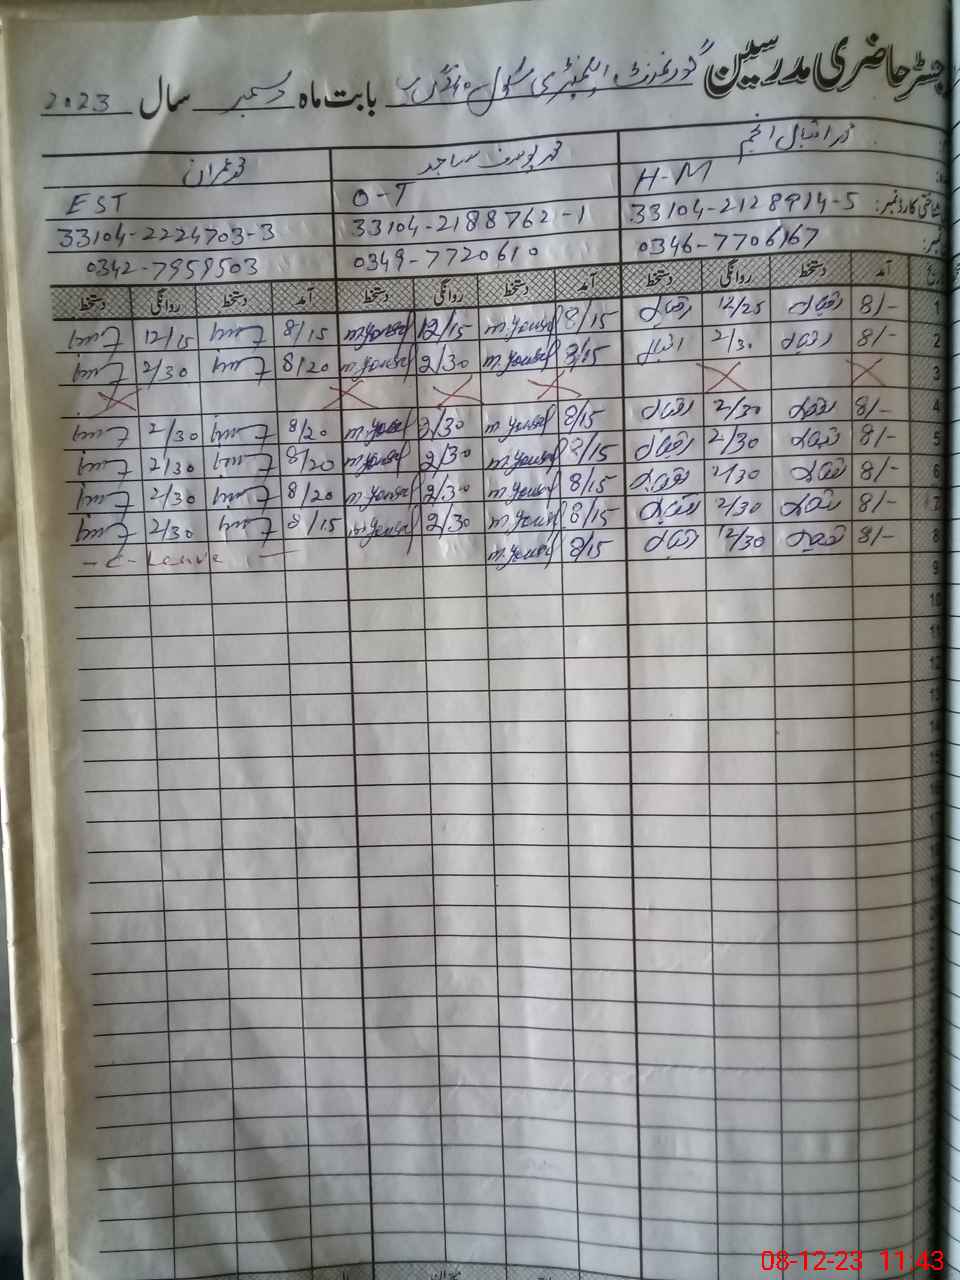 رجسٹر حاضری مدرسین گورنمنٹ ایلیمنٹری سکول 240 گ ب بابت ماہ دسمبر سال 2023
محمد اقبال انجم محمد یوسف ساجد محمد عمران
H-M O-T EST
شناختی کارڈ نمبر: 33104-2128914-5 33104-2188762-1 33104-2224703-3
نمبر: 0346-7706167 0349-7720610 0342-7959503
تاریخ آمد دستخط روانگی دستخط آمد دستخط روانگی دستخط آمد دستخط روانگی دستخط
1 8/- اقبال 12/25 اقبال 8/15 m.Yousaf 12/15 m.Yousaf 8/15 12/15
2 8/- اقبال 2/30 اقبال 8/15 m.Yousaf 2/30 m.Yousaf 8/20 2/30
3
4 8/- اقبال 2/30 اقبال 8/15 m.Yousaf 2/30 m.Yousaf 8/20 2/30
5 8/- اقبال 2/30 اقبال 8/15 m.Yousaf 2/30 m.Yousaf 8/20 2/30
6 8/- اقبال 2/30 اقبال 8/15 m.Yousaf 2/30 m.Yousaf 8/20 2/30
7 8/- اقبال 2/30 اقبال 8/15 m.Yousaf 2/30 m.Yousaf 8/15 2/30
8 8/- اقبال 12/30 اقبال 8/15 m.Yousaf - C - Leave -
9
10
11
12
13
14
15
16
08-12-23 11:43